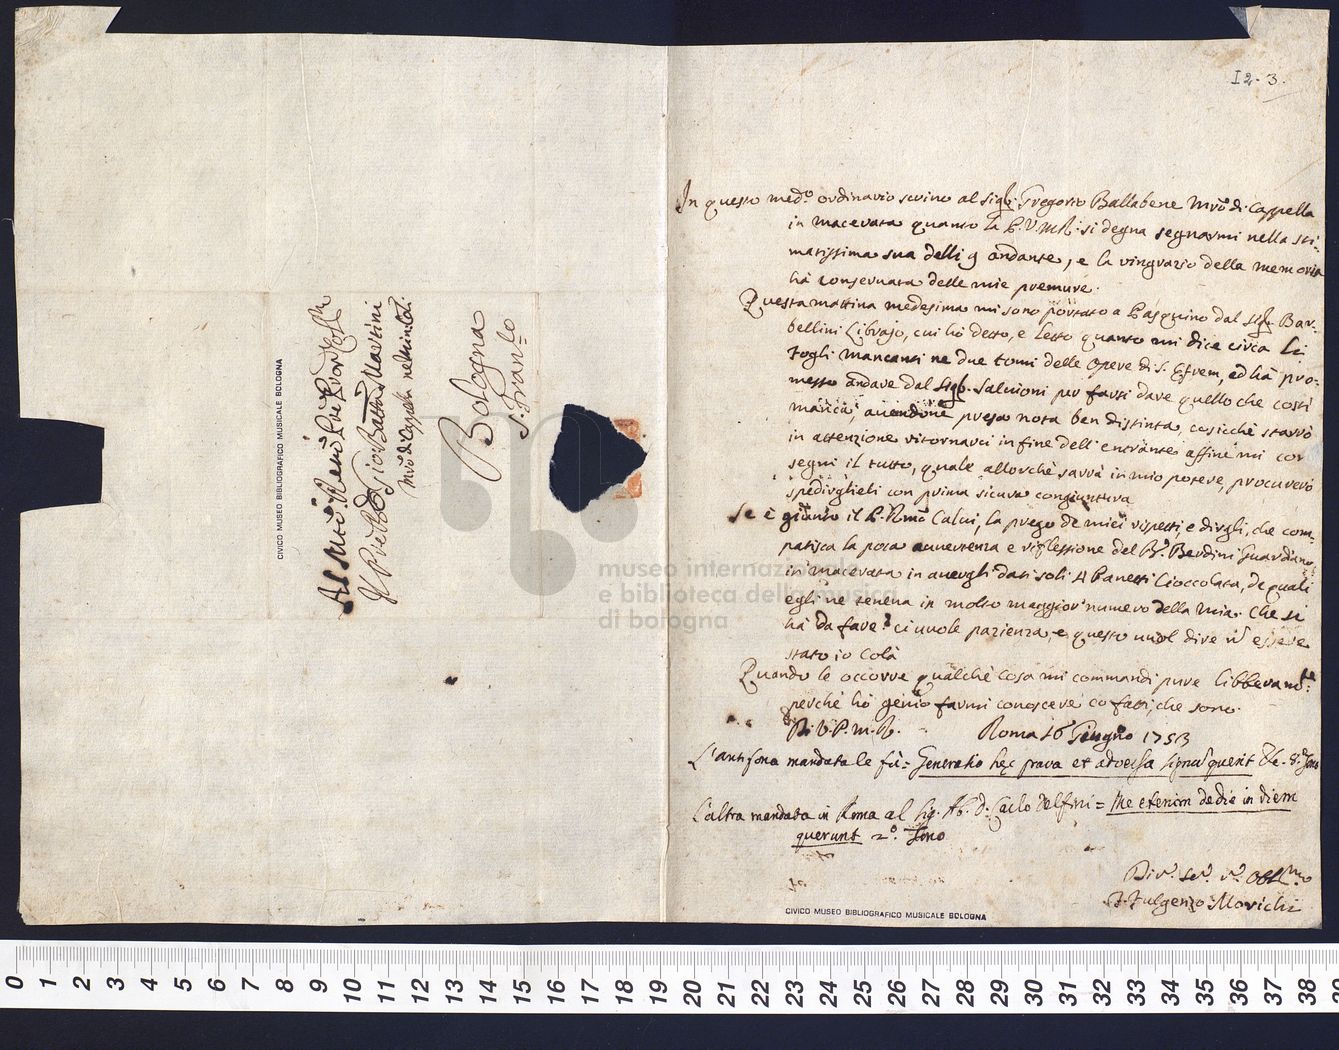 I2. 3.
In questo med.o ordinario scrivo al Sig.r Gregorio Ballabene Mro di Cappella
in macerata quanto la P.V.M.R. si degna segnarmi nella sti-
matissima sua delli 9 andante, e la ringrazio della memoria
hà conservata delle mie premure.
Questa mattina medesima mi sono portato a Pasquino dal Sig.r Bar-
bellini Librajo, cui hò detto, e letto quanto mi dice circa li
fogli mancanti ne due tomi delle Opere di S. Efrem, ed hà pro-
messo andare dal Sig.r Salvioni per farsi dare quello che costì
manca, avendone presa nota ben distinta, cosicchè starrò
in attenzione ritornarci in fine dell'entrante affine mi con
segni il tutto, quale allorchè sarrà in mio potere, procurerò
spedirglieli con prima sicura congiuntura
Se è giunto il P. Rmo Calvi, la prego de miei rispetti, e dirgli, che com-
patisca la poca avvertenza e riflessione del P. Berdini Guardiano
in macerata in avergli dati soli 4 Panetti Cioccolata, de quali
egli ne teneva in molto maggior numero della mia. Che si
hà da fare? ci vuole pazienza, e questo vuol dire n. essere
stato io colà
Quando le occorre qualchè cosa mi commandi pure libberamte:
perchè hò genio farmi conoscere co fatti, che sono.
Di V.P.M.R. Roma 16 Giugno 1753
L'antifona mandatale fù = Generatio hęc prava et adversa signu querit &c. 8.o Tono
L'altra mandata in Roma al Sig. Ab. D. Carlo Delfini = Me etenim de die in diem
querunt 2.o Tono
Div.mo Se.r v.o Obblmo
F. Fulgenzo Morichi
Al Mto Revdo Pre Pron Colmo
Il Pre Gio: Batta Martini
Mro di Cappella ne Min: Coli:
Bologna
S. Franco
CIVICO MUSEO BIBLIOGRAFICO MUSICALE BOLOGNA
CIVICO MUSEO BIBLIOGRAFICO MUSICALE BOLOGNA
museo internazionale
e biblioteca della musica
di bologna
0 1 2 3 4 5 6 7 8 9 10 11 12 13 14 15 16 17 18 19 20 21 22 23 24 25 26 27 28 29 30 31 32 33 34 35 36 37 38